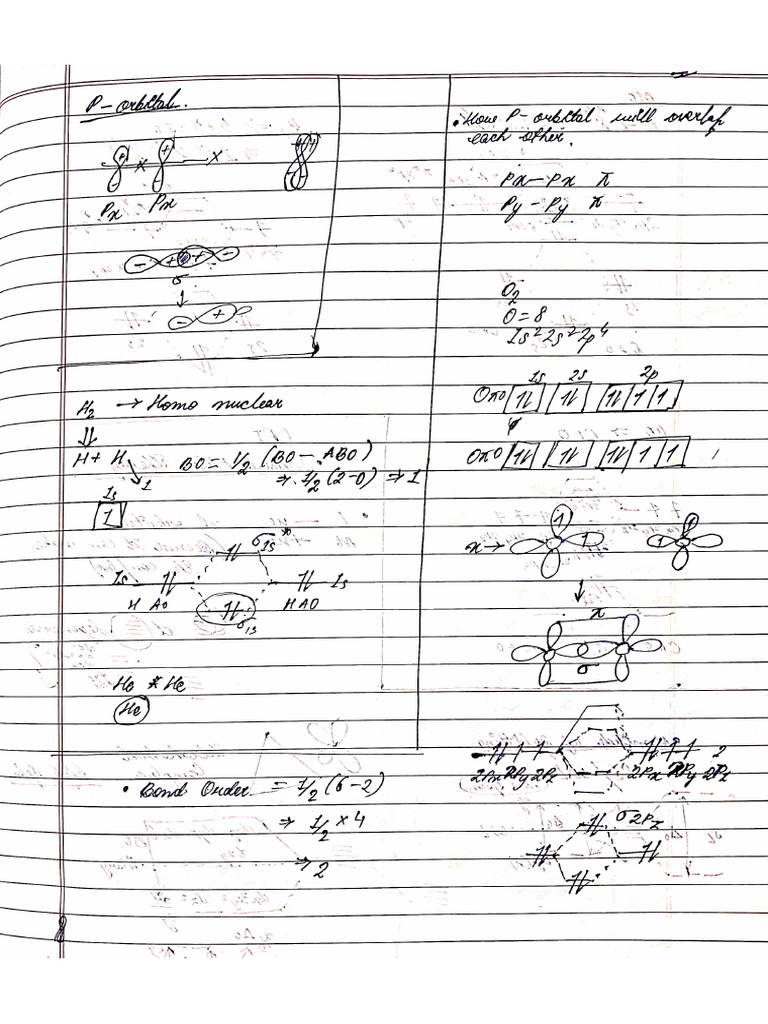 P-orbital.
+ x + — x
- -
Px Px
- + + -
σ
↓
- +
H2 → Homo nuclear
⇓
H + H
↘ 1
BO = 1/2 (BO - ABO)
⇒ 1/2 (2-0) ⇒ 1
1s
1
σ1s*
1s 1s
H AO H AO
σ1s
He * He
He
• Bond Order = 1/2 (6-2)
⇒ 1/2 x 4
⇒ 2
• How P-orbital will overlap
each other.
Px - Px π
Py - Py π
O2
O = 8
1s² 2s² 2p⁴
1s 2s 2p
O 1L 1L 1L 1 1
O 1L 1L 1L 1 1
x →
↓
π
σ
1L 1 1 1L 1 1 2
2Px 2Py 2Pz 2Px 2Py 2Pz
σ2Pz
8